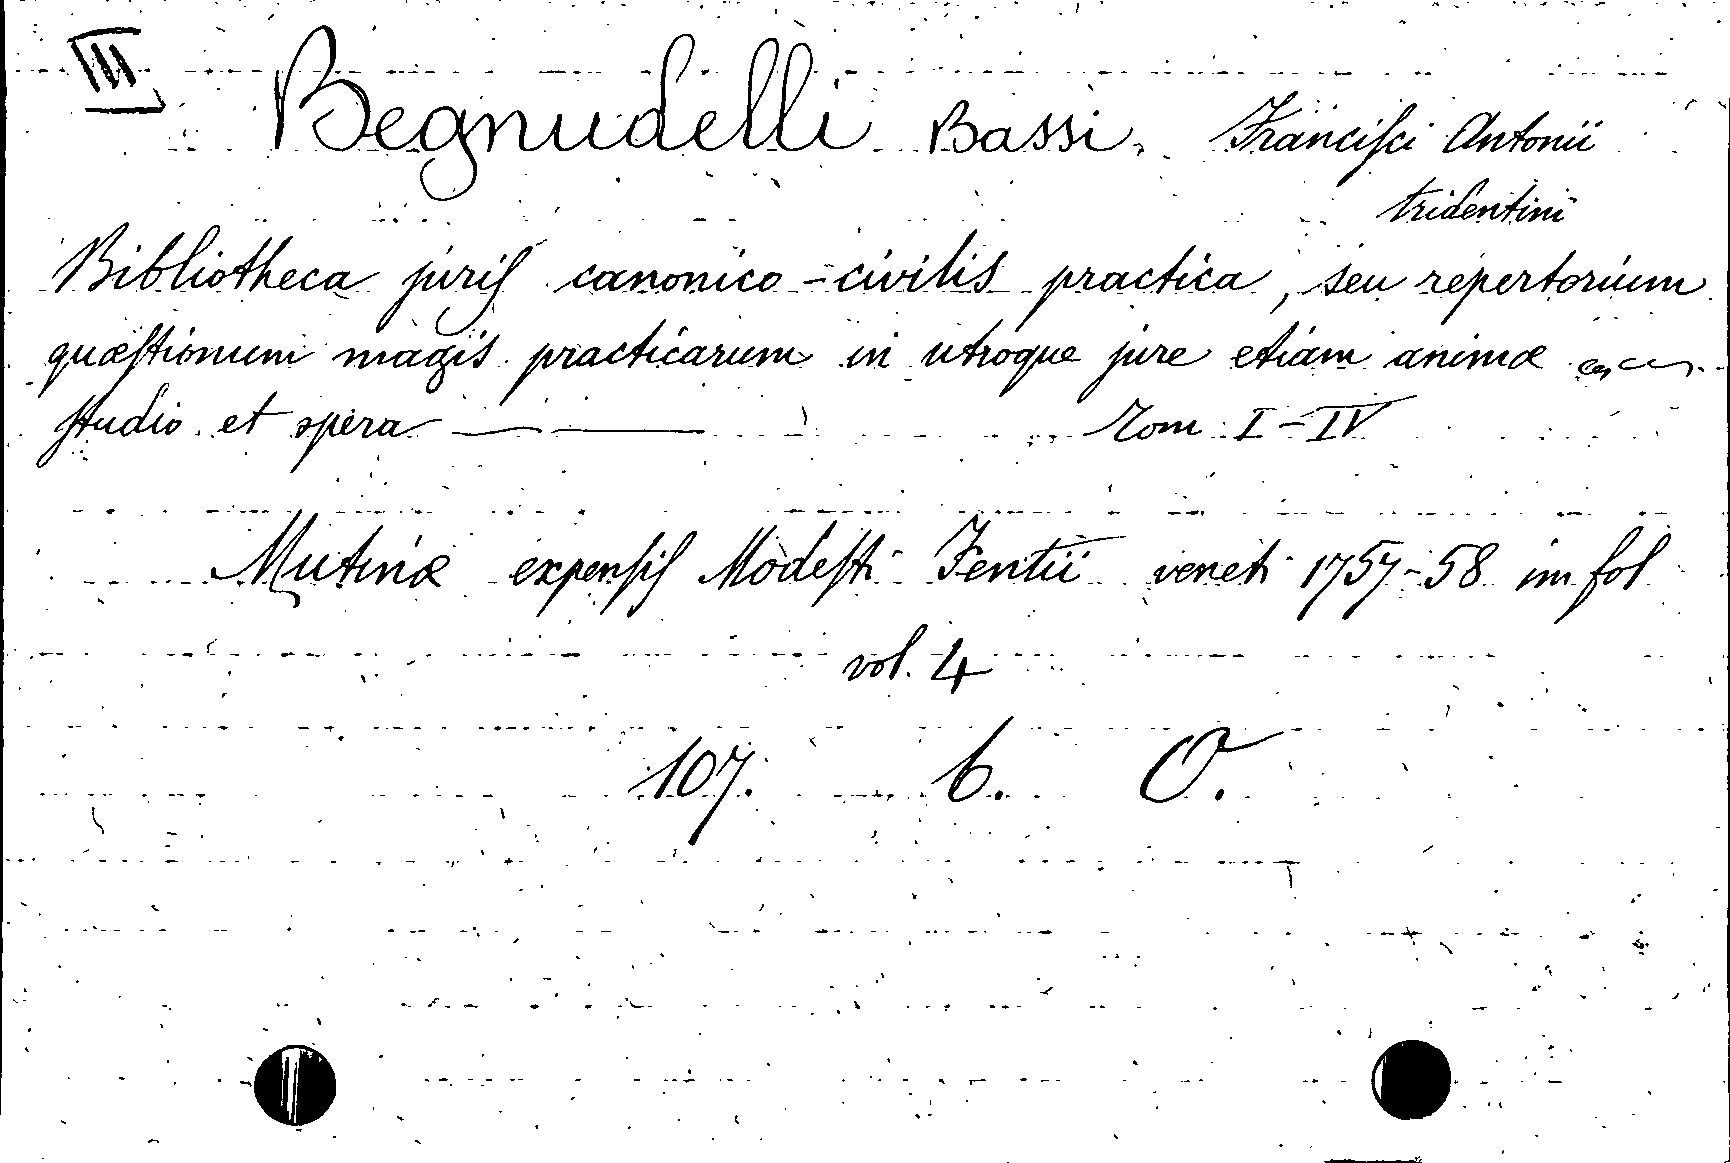 III Begnudelli Bassi, Franciſci Antonii
tridentini
Bibliotheca juriſ canonico-civilis practica, seu repertorium
quæſtionum magis practicarum in utroque jure etiam animæ
ſtudio et opera — — Tom I-IV
Mutinæ expenſiſ Modeſti Fentii veneti 1757-58 in fol
vol. 4
107. b. O.